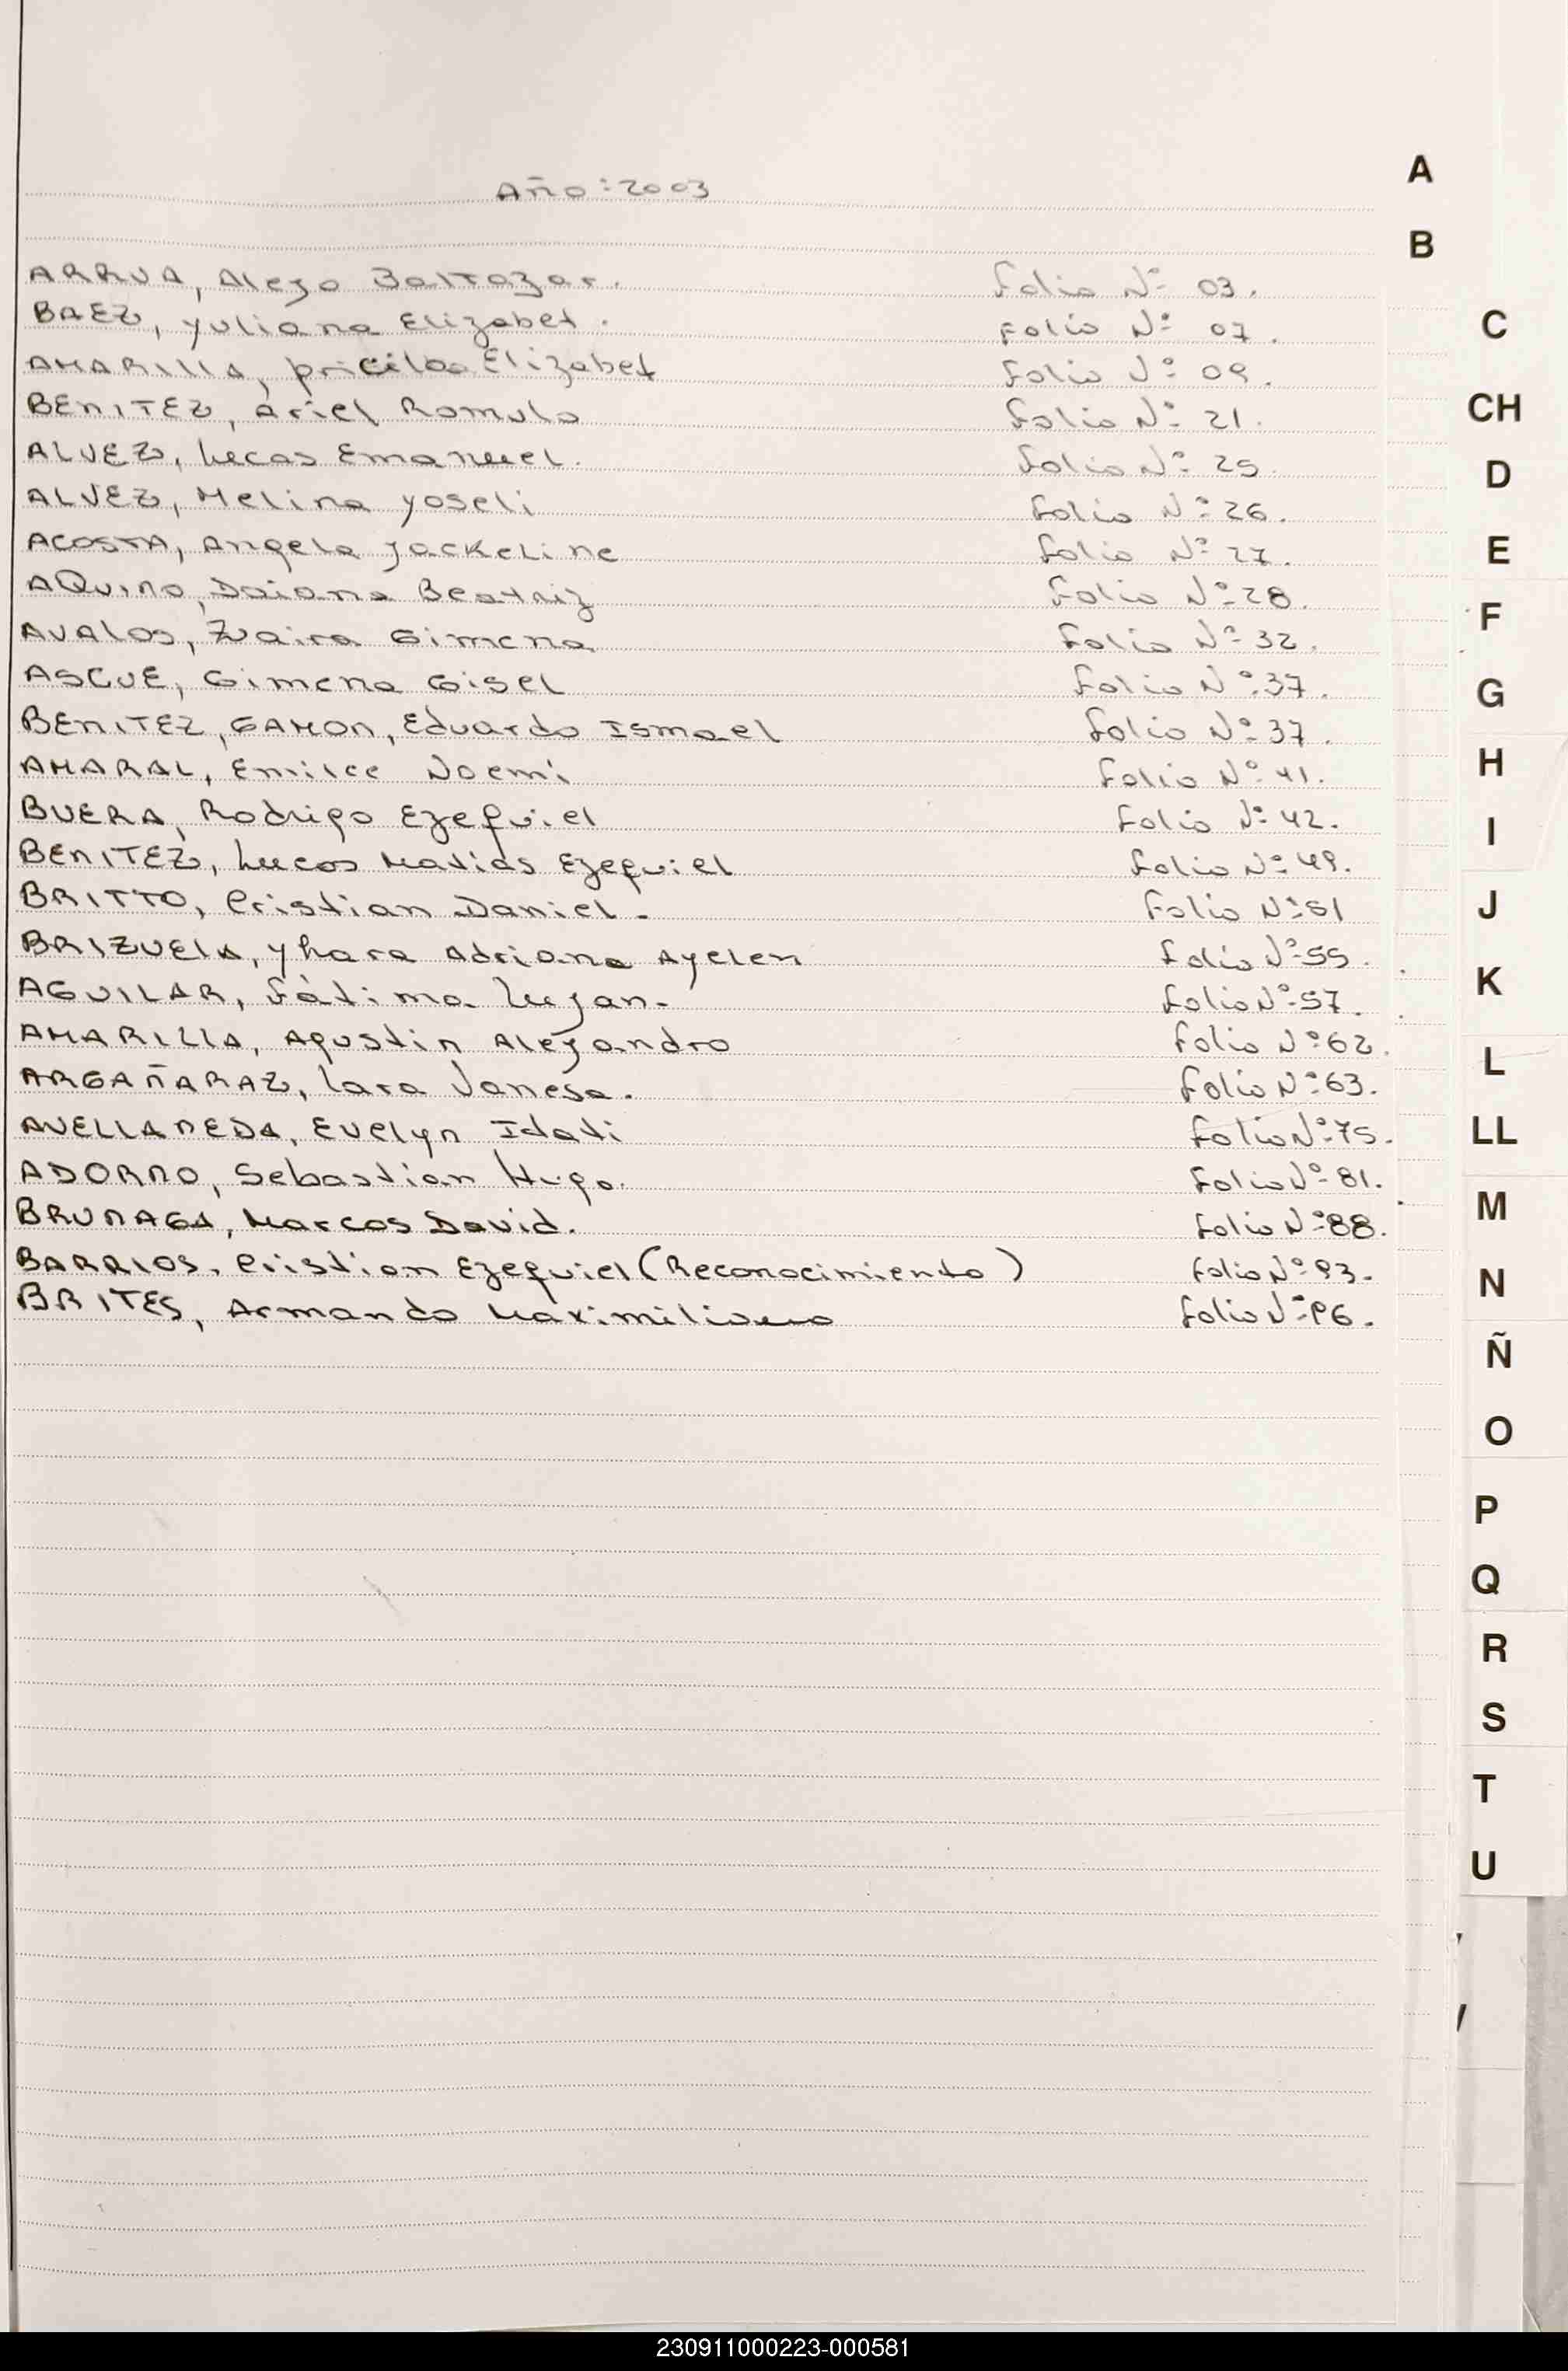 Año: 2003
ARRUA, Alejo Baltazar. Folio Nº 03.
BAEZ, Yuliana Elizabet. Folio Nº 07.
AMARILLA, Pricila Elizabet Folio Nº 09.
BENITEZ, Ariel Romulo Folio Nº 21.
ALVEZ, Lucas Emanuel. Folio Nº 25
ALVEZ, Melina Yoseli Folio Nº 26.
ACOSTA, Angela Jackeline Folio Nº 27.
AQuino, Daiana Beatriz Folio Nº 28.
AVALOS, Zvaira Gimena Folio Nº 32.
ASCUE, Gimena Gisel Folio Nº 37.
BENITEZ, GAMON, Eduardo Ismael Folio Nº 37.
AMARAL, Emilce Noemi Folio Nº 41.
BUERA, Rodrigo Ezequiel Folio Nº 42.
BENITEZ, Lucas Matias Ezequiel Folio Nº 49.
BRITTO, Cristian Daniel. Folio Nº 51
BRIZUELA, Yhara Adriana Ayelen Folio Nº 55.
AGUILAR, Fátima Lujan. Folio Nº 57.
AMARILLA, Agustin Alejandro Folio Nº 62.
ARGAÑARAZ, Lara Vanesa. Folio Nº 63.
AVELLANEDA, Evelyn Idati Folio Nº 75.
ADORNO, Sebastian Hugo. Folio Nº 81.
BRUNAGA, Marcos David. Folio Nº 88.
BARRIOS, Cristian Ezequiel (Reconocimiento) Folio Nº 93.
BRITES, Armando Maximiliano Folio Nº 96.
A
B
C
CH
D
E
F
G
H
I
J
K
L
LL
M
N
Ñ
O
P
Q
R
S
T
U
230911000223-000581